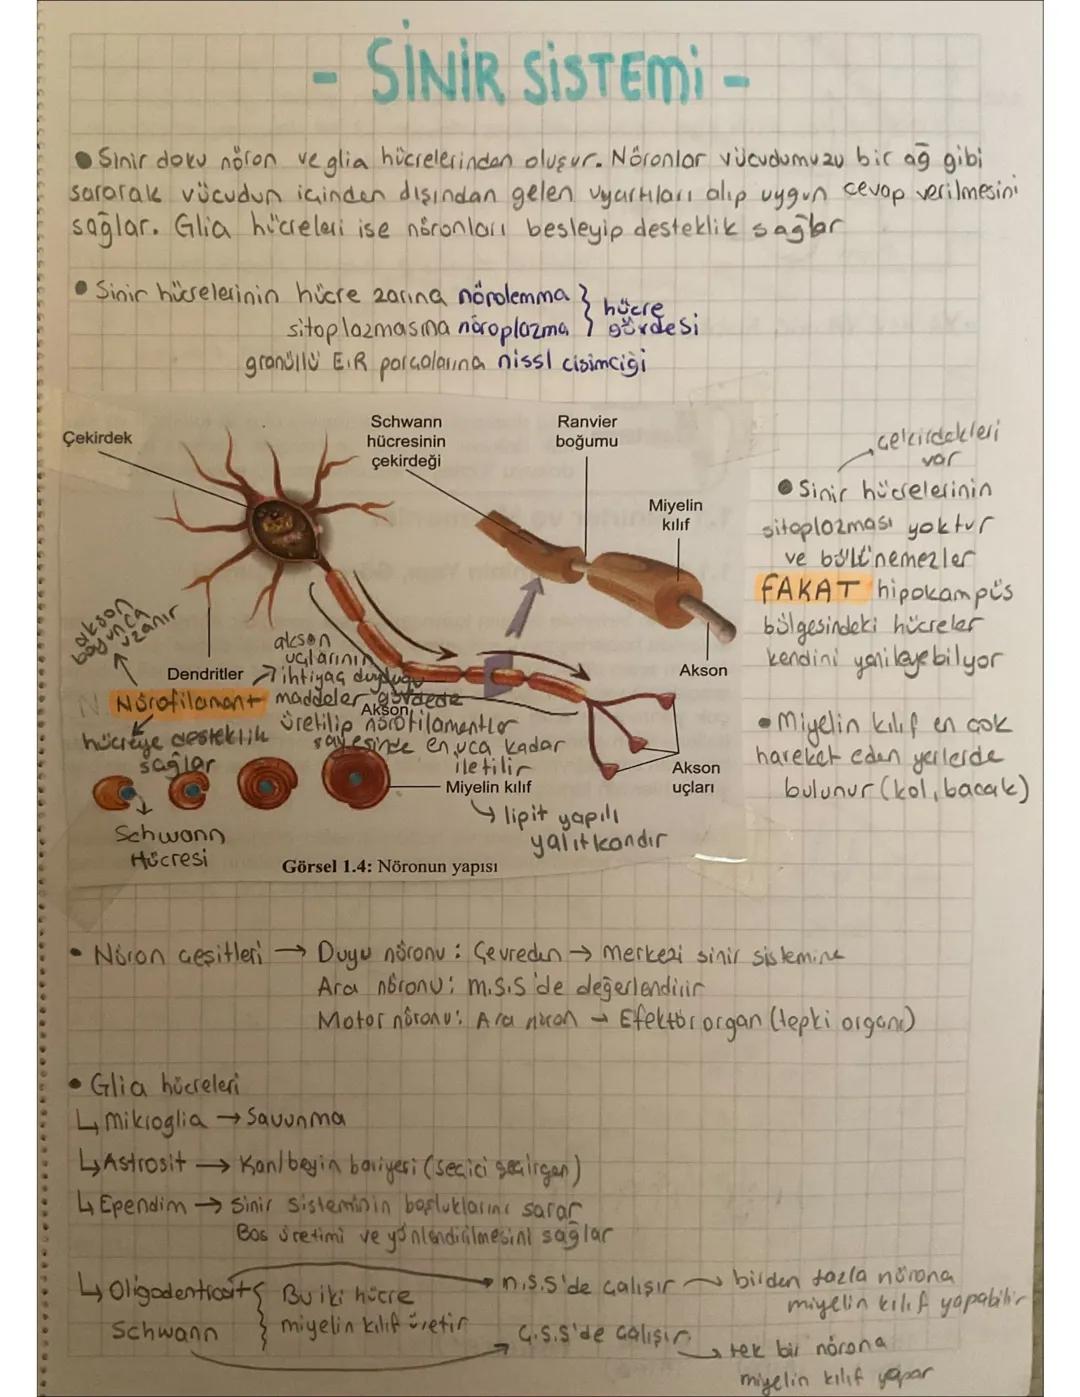 - SİNİR SİSTEMİ -
• Sinir doku nöron ve glia hücrelerinden oluşur. Nöronlar vücudumuzu bir ağ gibi
sararak vücudun içinden dışından gelen uyartıları alıp uygun cevap verilmesini
sağlar. Glia hücreleri ise nöronları besleyip desteklik sağlar
• Sinir hücrelerinin hücre zarına nörolemma } hücre
sitoplazmasına nöroplazma } gövdesi
granüllü E.R parçalarına nissl cisimciği
Çekirdek
Schwann
hücresinin
çekirdeği
Ranvier
boğumu
Miyelin
kılıf
Akson
Dendritler
Akson
Akson
uçları
Miyelin kılıf
→ lipit yapılı
yalıtkandır
akson
boyunca
uzanır
Nörofilament
hücreye desteklik
sağlar
akson
uçlarının
ihtiyaç duyduğu
maddeler gövdede
üretilip nörofilamentler
sayesinde en uca kadar
iletilir
Schwann
Hücresi
Görsel 1.4: Nöronun yapısı
çekirdekleri
var
• Sinir hücrelerinin
sitoplozması yoktur
ve bölünemezler
FAKAT hipokampüs
bölgesindeki hücreler
kendini yenileyebilyor
• Miyelin kılıf en çok
hareket eden yerlerde
bulunur (kol, bacak)
• Nöron çeşitleri → Duyu nöronu : Çevreden → Merkezi sinir sistemine
Ara nöronu : M.S.S'de değerlendirir
Motor nöronu : Ara nöron → Efektör organ (tepki organı)
• Glia hücreleri
↳ Mikroglia → Savunma
↳ Astrosit → Kan/beyin bariyeri (seçici geçirgen)
↳ Ependim → Sinir sisteminin boşluklarını sarar
Bos üretimi ve yönlendirilmesini sağlar
↳ Oligodentrosit } Bu iki hücre → M.S.S'de çalışır → birden fazla nörona
miyelin kılıf yapabilir
Schwann } miyelin kılıf üretir → Ç.S.S'de çalışır → tek bir nörona
miyelin kılıf yapar